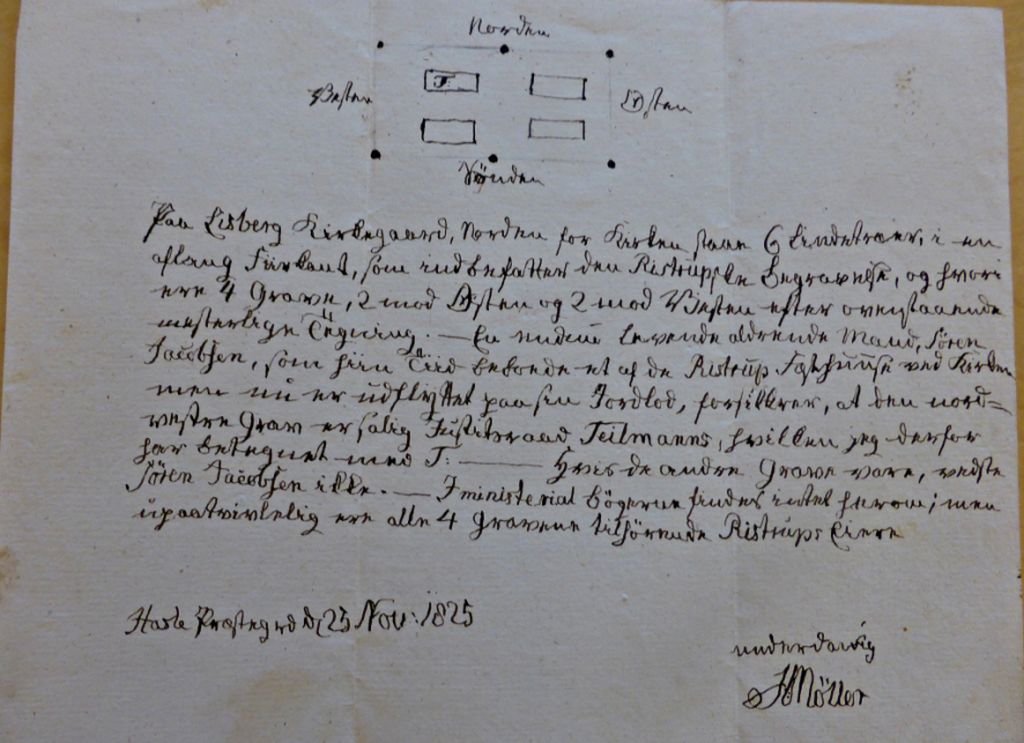 Norden
Vesten
T:
Østen
Sönden
Paa Lisberg Kirkegaard, Norden for Kirken staae 6 Lindetræer, i en
aflang Fiirkant, som indbefatter den Ristrupske Begravelse, og hvori
ere 4 Grave, 2 mod Østen og 2 mod Vesten efter ovenstaaende
mesterlige Tegning. — En endnu levende aldrende Mand, Sören
Jacobsen, som hiin Tiid beboede et af de Ristrup Fæstehuuse ved Kirken
men nu er udflyttet paa sin Jordlod, forsikkrer, at den nord=
vestre Grav er salig Justitsraad Teilmanns, hvilken jeg derfor
har betegnet med T: — Hvis de andre Grave vare, vedste
Sören Jacobsen ikke. — I ministerial Bögerne findes intet herom; men
upaatvivlelig ere alle 4 Gravene tilhörende Ristrups Eiere
Hasle Præstegrd d. 23 Nov: 1825
underdanig
Möller